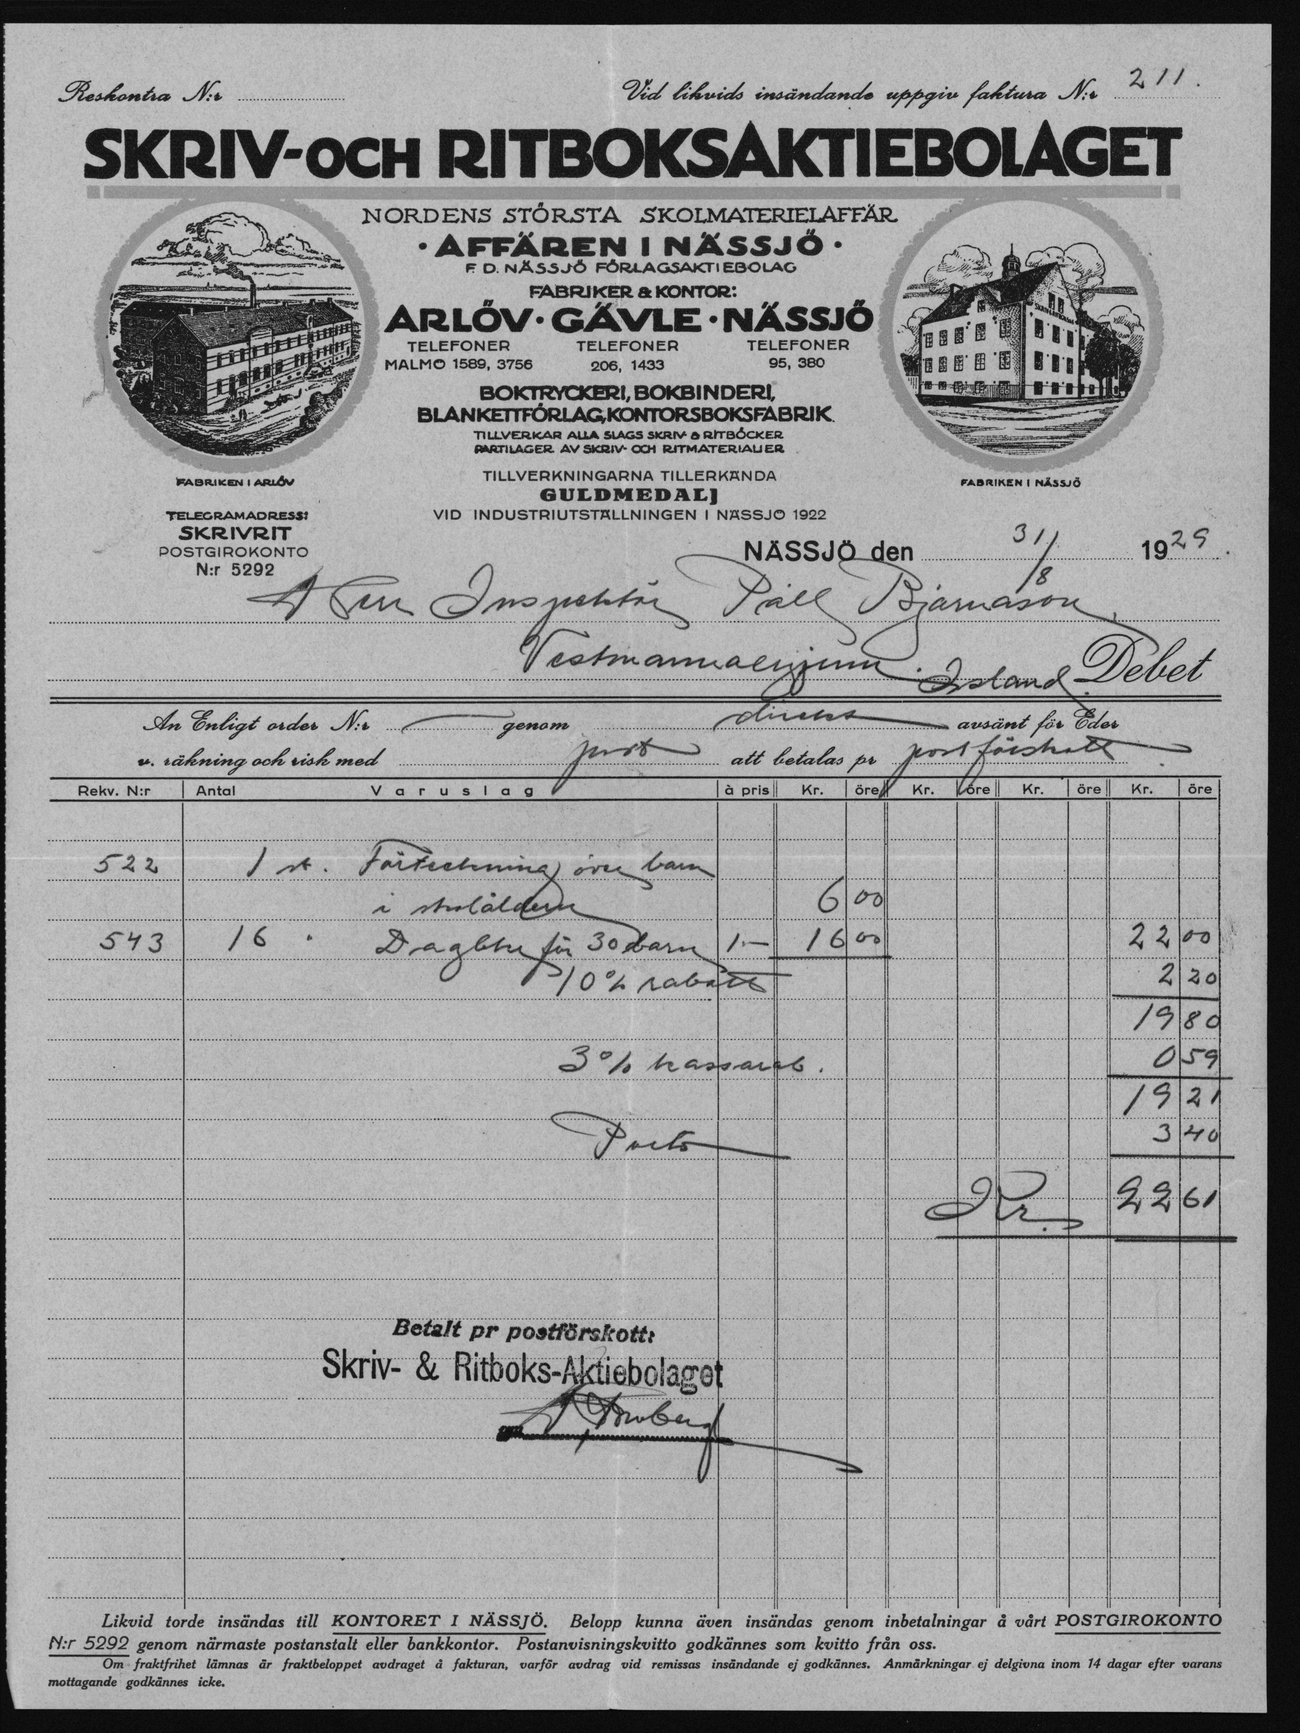 Reskontra N:r
Vid likvids insändande uppgiv faktura N:r 211.
SKRIV- OCH RITBOKSAKTIEBOLAGET
NORDENS STÖRSTA SKOLMATERIELAFFÄR
· AFFÄREN I NÄSSJÖ ·
F. D. NÄSSJÖ FÖRLAGSAKTIEBOLAG
FABRIKER & KONTOR:
ARLÖV · GÄVLE · NÄSSJÖ
TELEFONER TELEFONER TELEFONER
MALMÖ 1589, 3756 206, 1433 95, 380
BOKTRYCKERI, BOKBINDERI,
BLANKETTFÖRLAG, KONTORSBOKSFABRIK.
TILLVERKAR ALLA SLAGS SKRIV- & RITBÖCKER
PARTILAGER AV SKRIV- OCH RITMATERIALIER
TILLVERKNINGARNA TILLERKÄNDA
GULDMEDALJ
VID INDUSTRIUTSTÄLLNINGEN I NÄSSJÖ 1922
FABRIKEN I ARLÖV
TELEGRAMADRESS:
SKRIVRIT
POSTGIROKONTO
N:r 5292
FABRIKEN I NÄSSJÖ
NÄSSJÖ den 31/8 1929.
Herr Inspektör Páll Bjarnason,
Vestmannaeyjum. Island. Debet
An Enligt order N:r genom direkt avsänt för Eder
v. räkning och risk med post att betalas pr postförskott
Rekv. N:r Antal Varuslag à pris Kr. öre Kr. öre Kr. öre Kr. öre
522 1 st. Förteckning över barn
i skolåldern 6 00
543 16 " Dagbke för 30 barn 1.— 16 00 22 00
10% rabatt 2 20
19 80
3% kassarab. 0 59
19 21
Porto 3 40
Kr. 22 61
Betalt pr postförskott:
Skriv- & Ritboks-Aktiebolaget
Likvid torde insändas till KONTORET I NÄSSJÖ. Belopp kunna även insändas genom inbetalningar å vårt POSTGIROKONTO
N:r 5292 genom närmaste postanstalt eller bankkontor. Postanvisningskvitto godkännes som kvitto från oss.
Om fraktfrihet lämnas är fraktbeloppet avdraget å fakturan, varför avdrag vid remissas insändande ej godkännes. Anmärkningar ej delgivna inom 14 dagar efter varans
mottagande godkännes icke.